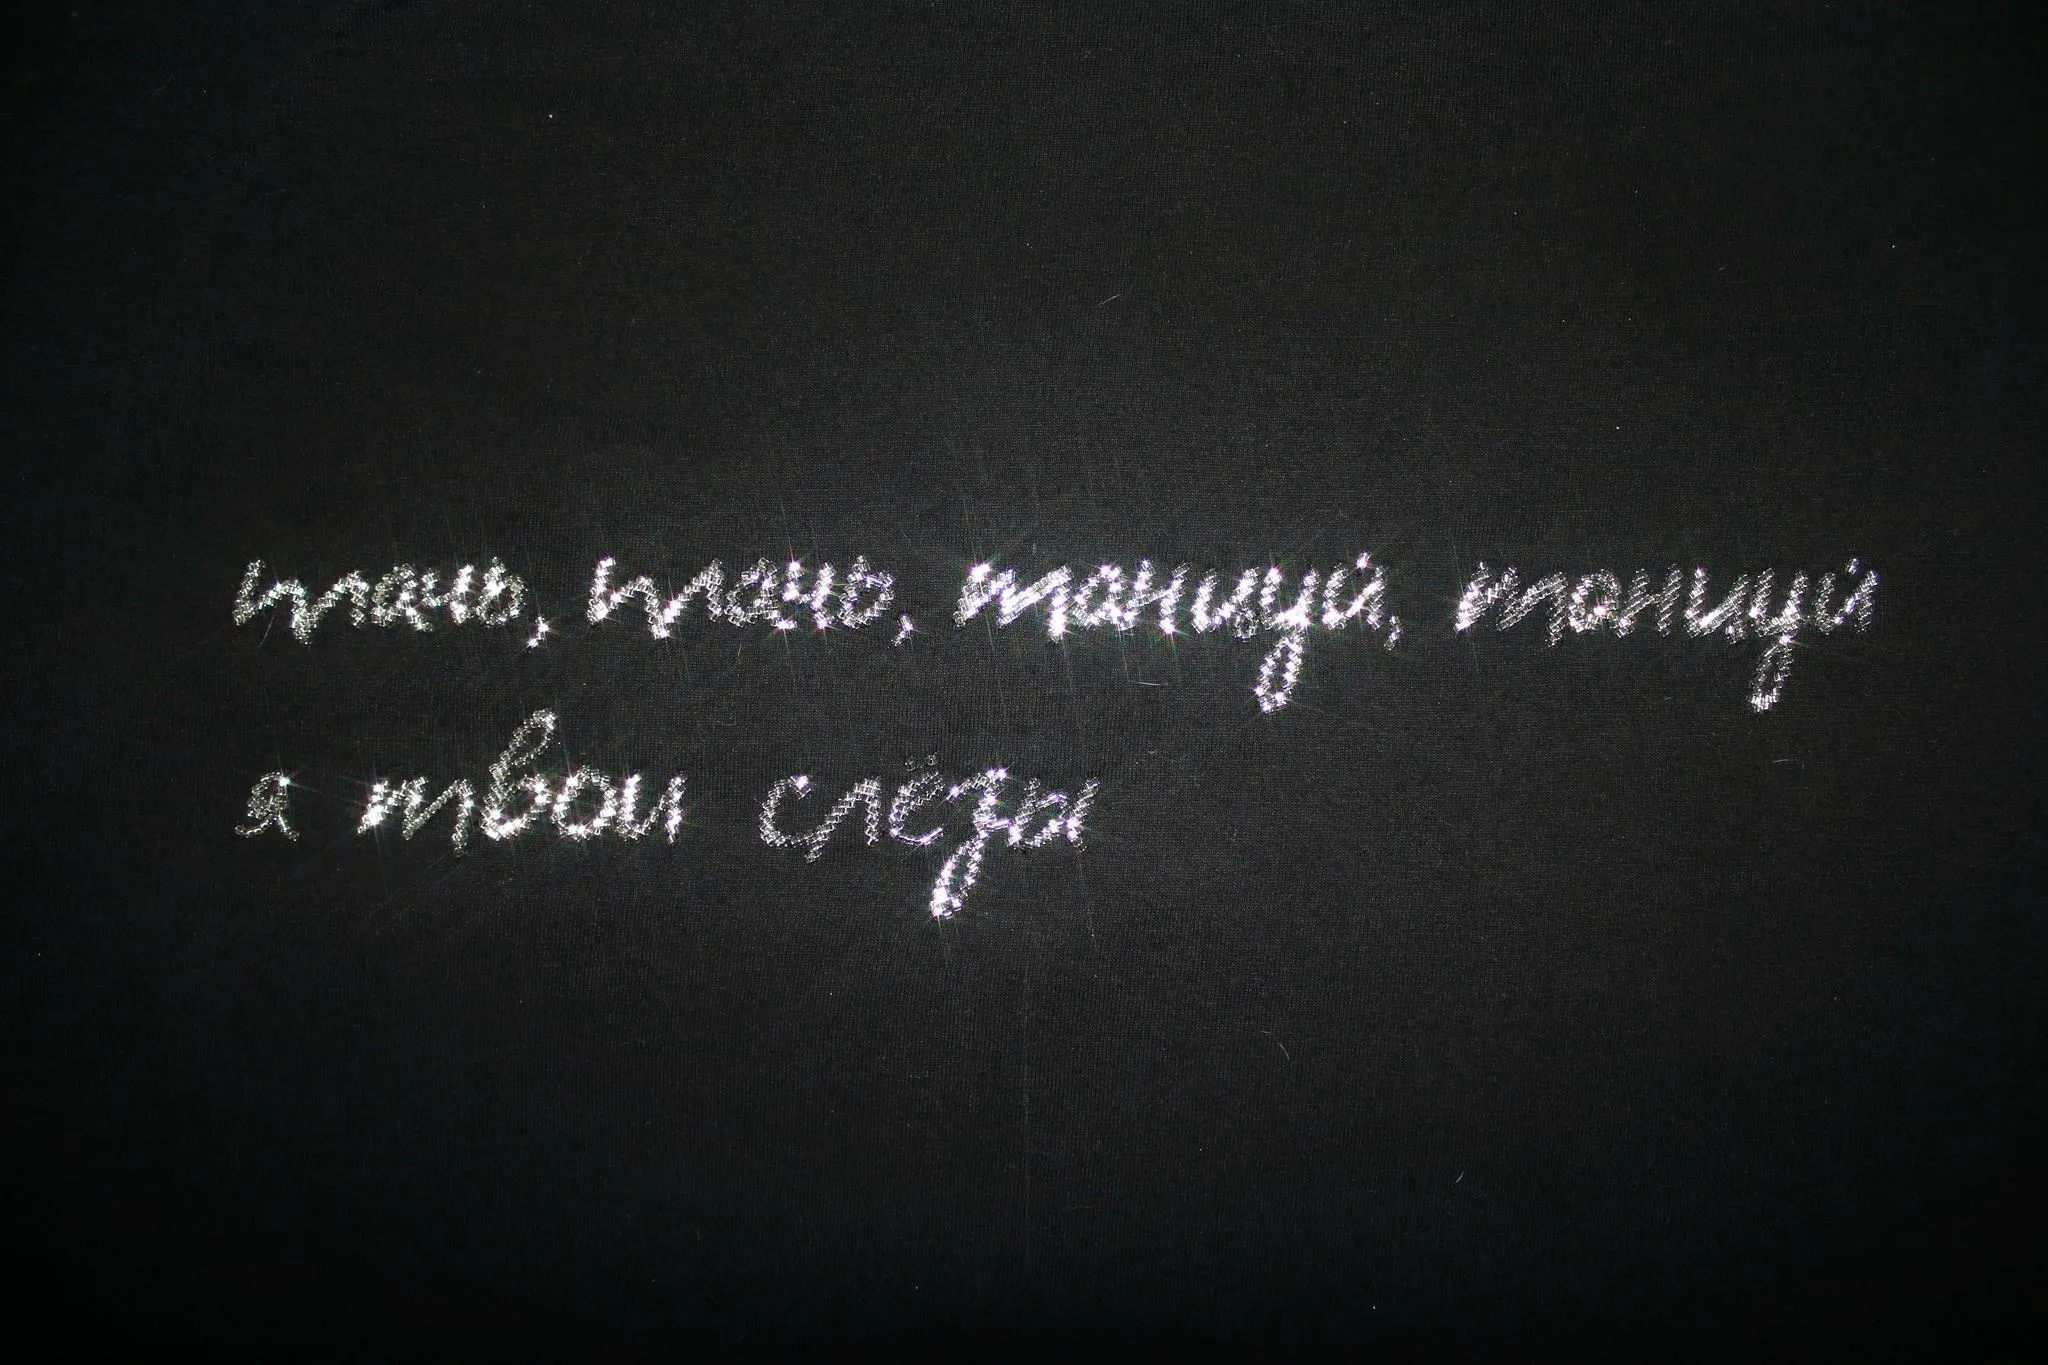 плачь, плачь, танцуй, танцуй
я твои слёзы